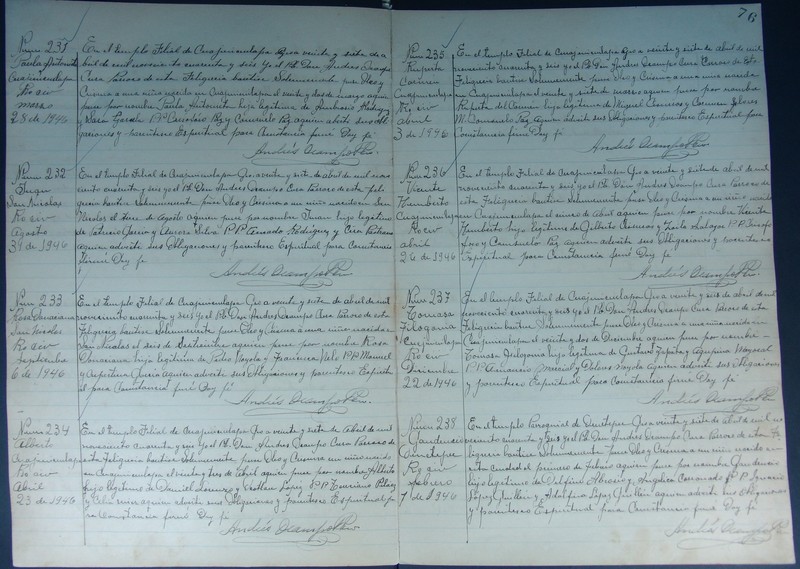 76
Num 231
Paula Antonieta
Cuajinicuilapa
Ro civ
marzo
28 de 1946
En el templo Filial de Cuajinicuilapa Gro a veinte y siete de a
bril de mil novecientos cuarenta y seis yo el Pb. Don Andres Ocampo
Cura Parroco de esta Feligrecia bautice Solemnemente puse Oleo y
Crisma a una niña nacida en Cuajinicuilapa el veinte y dos de marzo aquien
puse por nombre Paula Antonieta hija legitima de
y Sara P.P. y Consuelo Rey aquien adverti sus obli
gaciones y parentesco Espiritual para Constancia firmé Doy fé
Andrés Ocampo Pbro.
Num 232
Juan
San Nicolas
Ro civ
Agosto
31 de 1946
En el templo Filial de Cuajinicuilapa Gro a veinte y siete de abril de mil nove
cientos cuarenta y seis yo el Pb. Don Andres Ocampo Cura Parroco de esta feli
gresia bautice Solemnemente puse Oleo y Crisma a un niño nacido en San
Nicolas el trece de Agosto aquien puse por nombre Juan hijo legitimo
de y Aurora Silva P.P. Amado Rodriguez y
aquien adverti sus Obligaciones y parentesco Espiritual para Constancia
firmé Doy fé
Andrés Ocampo Pbro.
Num 233
Rosa
San Nicolas
Ro civ
Septiembre
6 de 1946
En el templo Filial de Cuajinicuilapa Gro a veinte y siete de abril de mil
novecientos cuarenta y seis yo el Pb. Don Andres Ocampo Cura Parroco de esta
Feligrecia bautice Solemnemente puse Oleo y Crisma a una niña nacida en
San Nicolas el seis de Septiembre aquien puse por nombre Rosa
hija legitima de Pedro y Francisca P.P. Manuel
y aquien adverti sus Obligaciones y parentesco Espiritu
al para Constancia firmé Doy fé
Andrés Ocampo Pbro.
Num 234
Alberto
Cuajinicuilapa
Ro civ
Abril
23 de 1946
En el templo Filial de Cuajinicuilapa Gro a veinte y siete de Abril de mil
novecientos cuarenta y seis yo el Pb. Don Andres Ocampo Cura Parroco de
esta Feligrecia bautice Solemnemente puse Oleo y Crisma a un niño nacido
en Cuajinicuilapa el veinte y tres de Abril aquien puse por nombre Alberto
hijo legitimo de Daniel y P.P.
y aquien adverti sus Obligaciones y parentesco Espiritual pa
ra Constancia firmé Doy fé
Andrés Ocampo Pbro.
Num 235
Ruperta
Carmen
Cuajinicuilapa
Ro civ
abril
3 de 1946
En el templo Filial de Cuajinicuilapa Gro a veinte y siete de abril de mil
novecientos cuarenta y seis yo el Pb. Don Andres Ocampo Cura Parroco de esta
Feligrecia bautice Solemnemente puse Oleo y Crisma a una niña nacida
en Cuajinicuilapa el veinte y siete de marzo aquien puse por nombre
Ruperta del Carmen hija legitima de Miguel Cisneros y Carmen
M. Consuelo Rey aquien adverti sus Obligaciones y parentesco Espiritual para
Constancia firmé Doy fé
Andrés Ocampo Pbro.
Num 236
Vicente
Humberto
Cuajinicuilapa
Ro civ
abril
26 de 1946
En el templo Filial de Cuajinicuilapa Gro a veinte y siete de Abril de mil
novecientos cuarenta y seis yo el Pb. Don Andres Ocampo Cura Parroco de
esta Feligrecia bautice Solemnemente puse Oleo y Crisma a un niño nacido
en Cuajinicuilapa el cinco de Abril aquien puse por nombre Vicente
Humberto hijo legitimo de Gilberto Cisneros y P.P.
y Consuelo Rey aquien adverti sus Obligaciones y parentesco
Espiritual para Constancia firmé Doy fé
Andrés Ocampo Pbro.
Num 237
Tomasa
Filogonia
Cuajinicuilapa
Ro civ
Diciembre
22 de 1946
En el templo Filial de Cuajinicuilapa Gro a veinte y seis de abril de mil
novecientos cuarenta y seis yo el Pb. Don Andres Ocampo Cura Parroco de esta
Feligrecia bautice Solemnemente puse Oleo y Crisma a una niña nacida en
Cuajinicuilapa el veinte y dos de Diciembre aquien puse por nombre
Tomasa Filogonia hija legitima de Gustavo Zapata y Agripina Mayoral
P.P. y Dolores aquien adverti sus Obligaciones
y parentesco Espiritual para Constancia firmé Doy fé
Andrés Ocampo Pbro.
Num 238
Gaudencio
Ometepec
Ro civ
febrero
1 de 1946
En el templo Parroquial de Ometepec Gro a veinte y siete de abril de mil no
vecientos cuarenta y seis yo el Pb. Don Andres Ocampo Cura Parroco de esta Fe
ligrecia bautice Solemnemente puse Oleo y Crisma a un niño nacido en
esta ciudad el primero de febrero aquien puse por nombre Gaudencio
hijo legitimo de Delfino y Angelica P.P. Ignacio
Lopez Guillen y Adelfina Lopez Guillen aquien adverti sus Obligaciones
y parentesco Espiritual para Constancia firmé Doy fé
Andrés Ocampo Pbro.